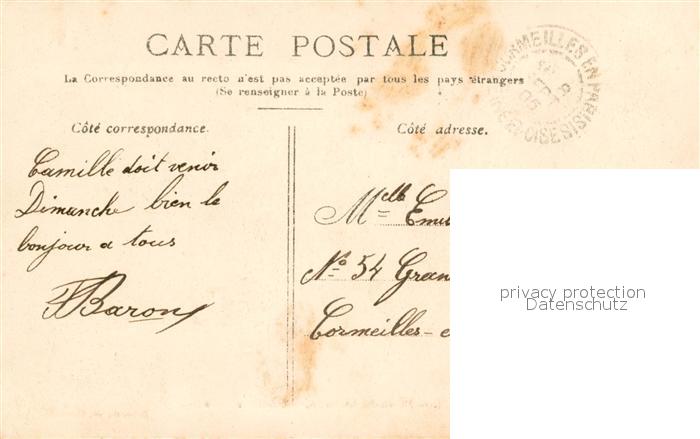 CARTE POSTALE
La Correspondance au recto n'est pas acceptée par tous les pays étrangers
(Se renseigner à la Poste)
Côté correspondance.
Camille doit venir
Dimanche bien le
bonjour a tous
Baron
Côté adresse.
Melle
No 54 Gran
Cormeilles - e
CORMEILLES EN PARISIS
OISE
privacy protection
Datenschutz